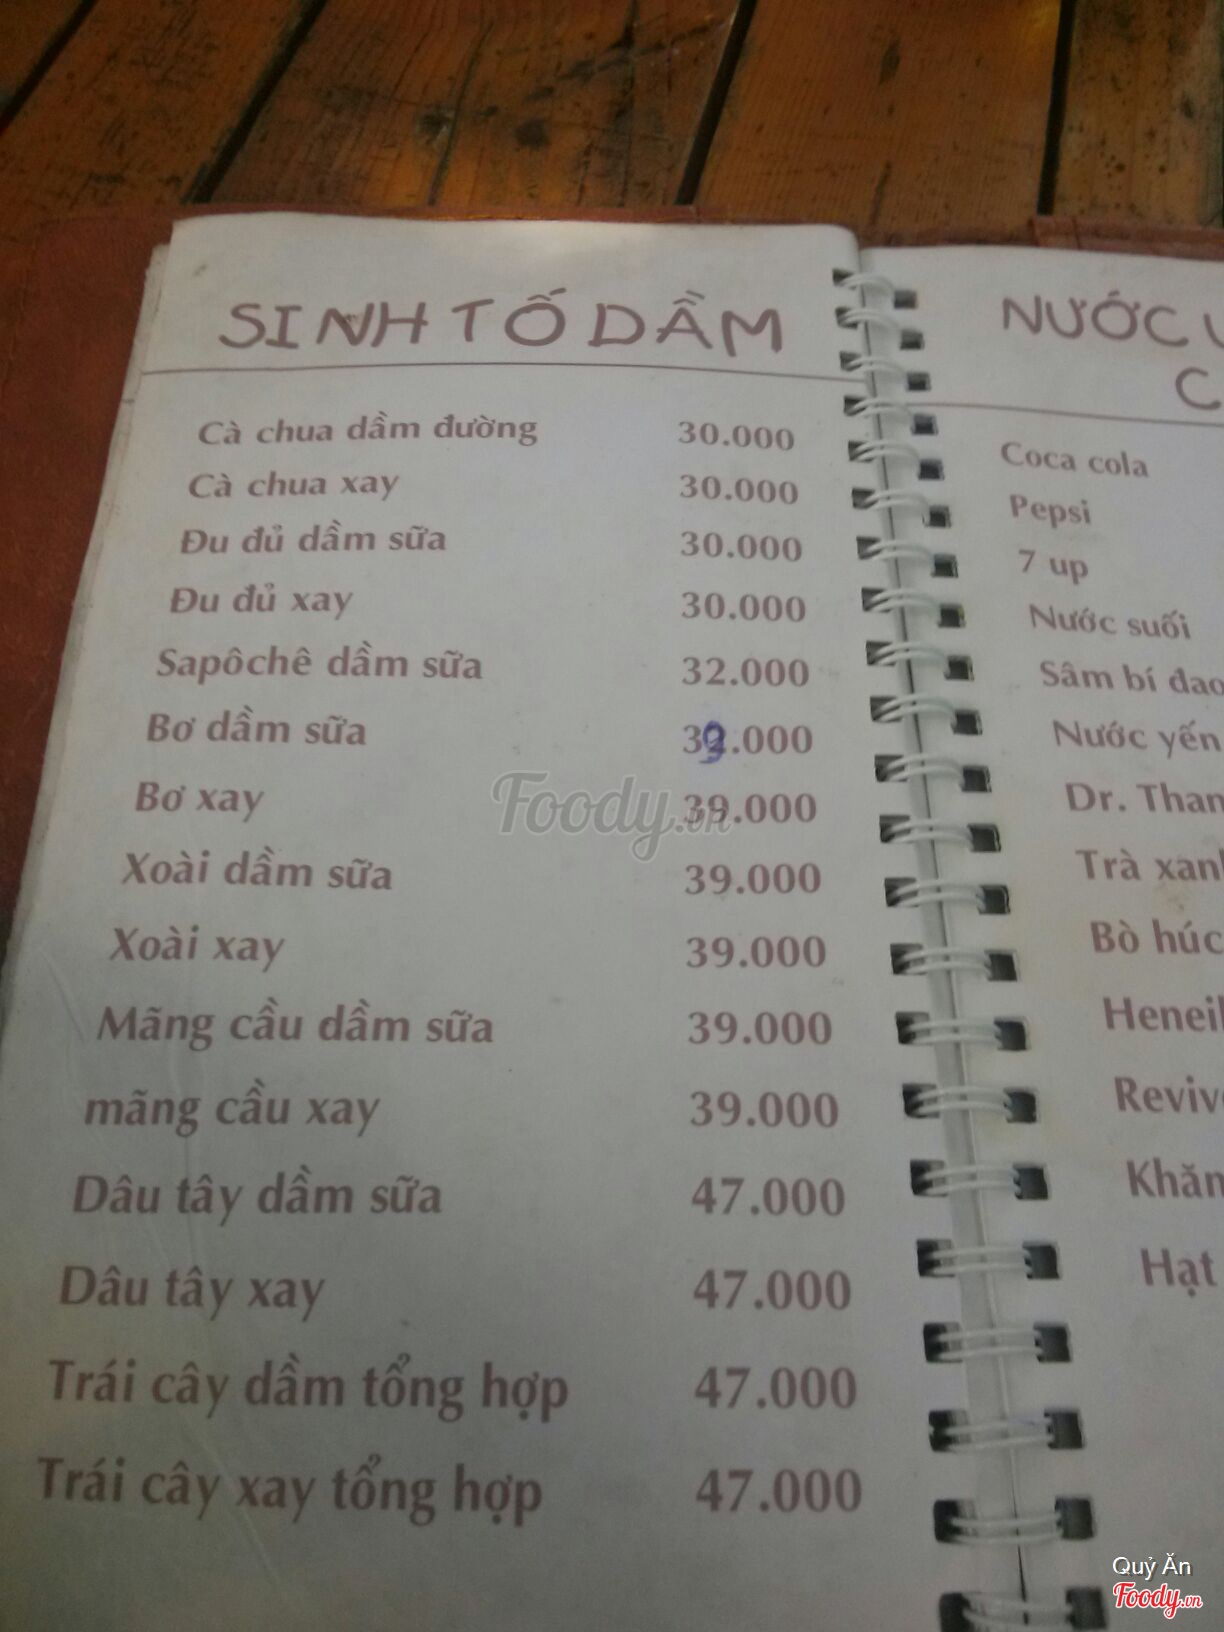 SINH TỐ DẦM
Cà chua dầm đường 30.000
Cà chua xay 30.000
Đu đủ dầm sữa 30.000
Đu đủ xay 30.000
Sapôchê dầm sữa 32.000
Bơ dầm sữa 39.000
Bơ xay 39.000
Xoài dầm sữa 39.000
Xoài xay 39.000
Mãng cầu dầm sữa 39.000
mãng cầu xay 39.000
Dâu tây dầm sữa 47.000
Dâu tây xay 47.000
Trái cây dầm tổng hợp 47.000
Trái cây xay tổng hợp 47.000
NƯỚC
Coca cola
Pepsi
7 up
Nước suối
Sâm bí đao
Nước yến
Dr. Than
Trà xan
Bò húc
Henei
Reviv
Khăn
Hạt
Foody.vn
Quỷ Ăn
Foody.vn